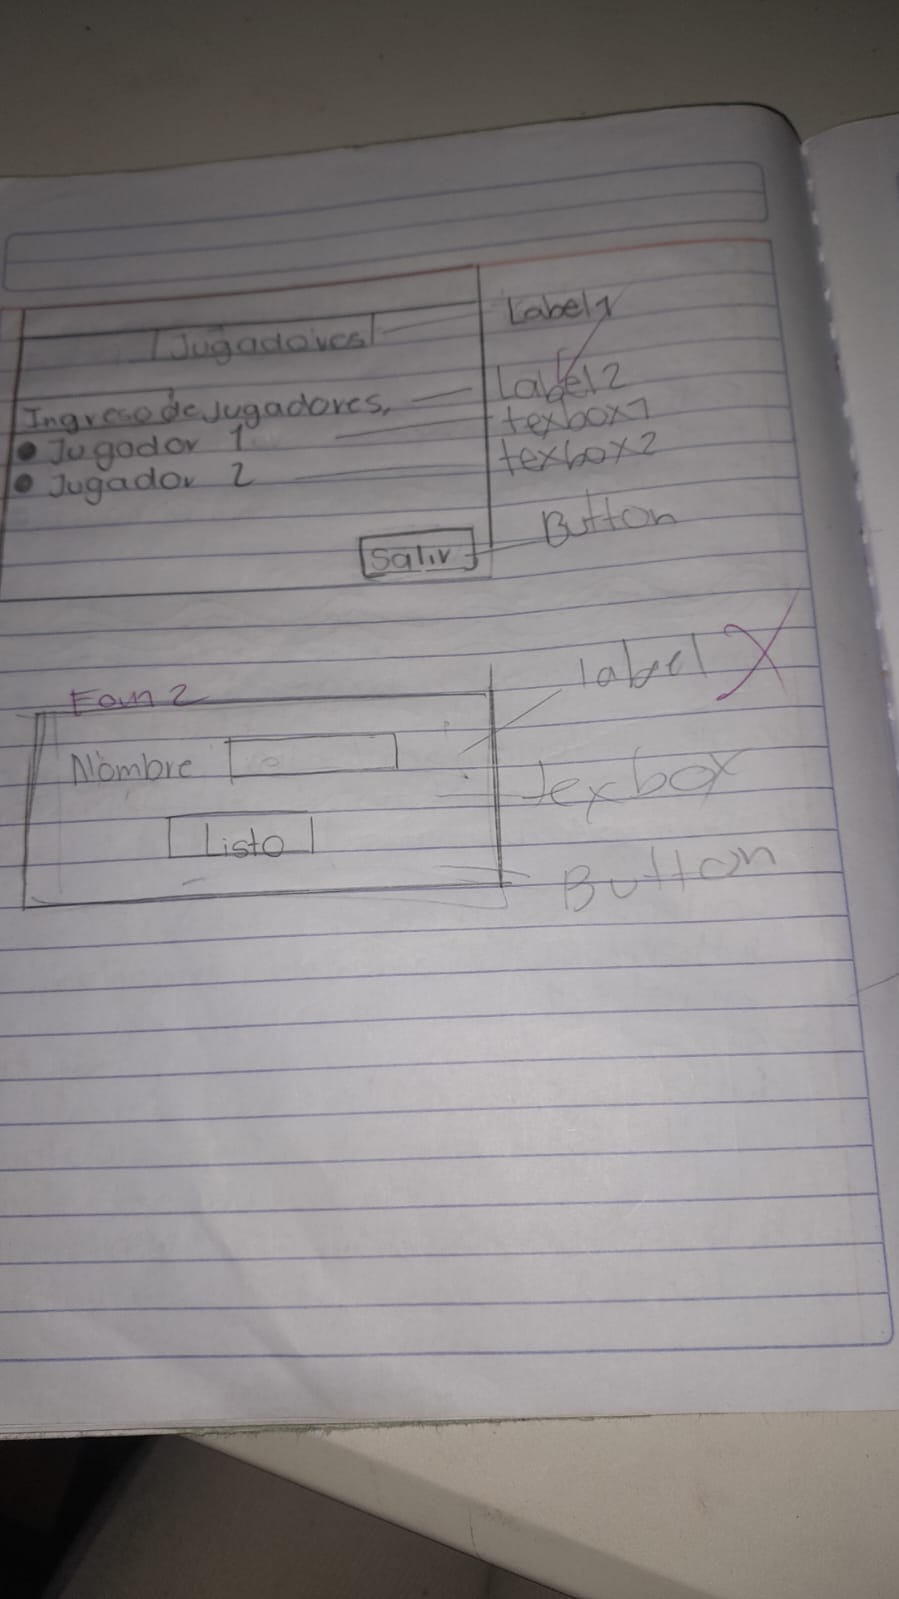 Jugadores
Label1
Ingreso de Jugadores,
Label2
Jugador 1
texbox1
Jugador 2
texbox2
Salir
Button
Form 2
label
Nombre
texbox
Listo
Button